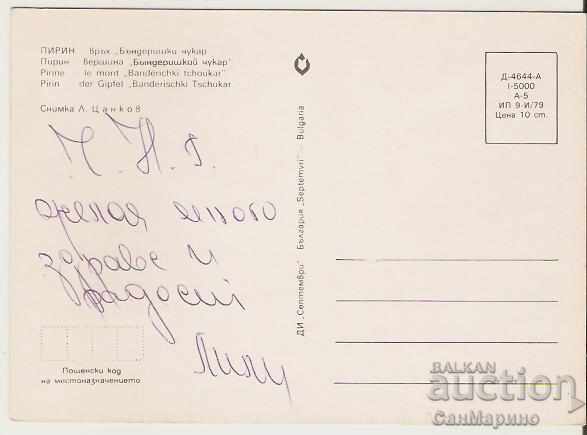 ПИРИН връх „Бъндеришки чукар
Пирин вершина „Бындеришкий чукар"
Pirine le mont „Banderichki tchoukar"
Pirin der Gipfel „Banderischki Tschukar
Снимка Л. Цанков
Ч. Н. Г.
желая много
здраве и
радост
Лили
Пощенски код
на местоназначението
ДИ „Септември" България „Septemvri" — Bulgaria
Д-4644-А
I-5000
А-5
ИП 9-И/79
Цена 10 ст.
BALKAN
auction
СанМарино